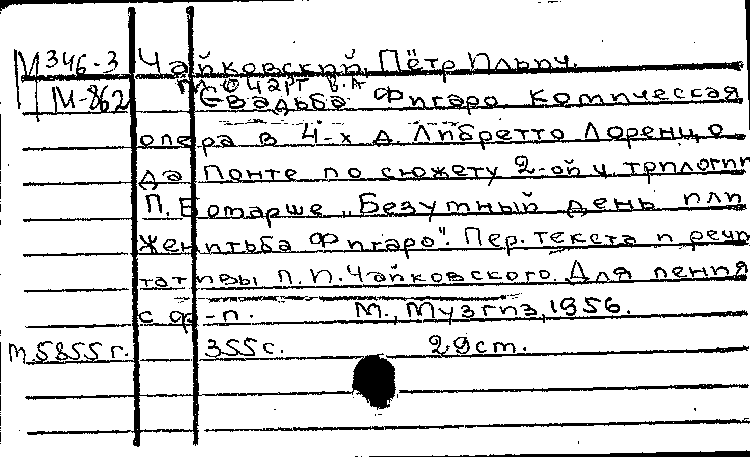 М346-3 Чайковский, Пётр Ильич.
М-862 Моцарт В.А
Свадьба Фигаро Комическая
опера в 4-х д. Либретто Лоренцо
да Понте по сюжету 2-ой ч. трилогии
П. Бомарше „Безумный день или
Женитьба Фигаро". Пер. текста и речи
тативы П.И.Чайковского. Для пения
с ф-п. М., Музгиз, 1956.
М5855г. 355с. 29см.